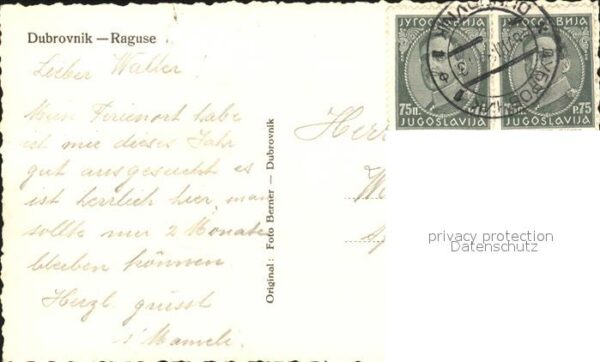 Dubrovnik — Raguse
Lieber Walter!
Mein Ferienort habe
ist mir dieses Jahr
gut ausgesucht es
ist herrlich hier, man
sollte nur 2 Monate
bleiben können.
Herzl. grüsst
s'
Original: Foto Berner — Dubrovnik
Herr
ЈУГОСЛАВИЈА
75п.
JUGOSLAVIJA
ЈУГОСЛАВИЈА
P.75
JUGOSLAVIJA
DUBROVNIK
privacy protection
Datenschutz